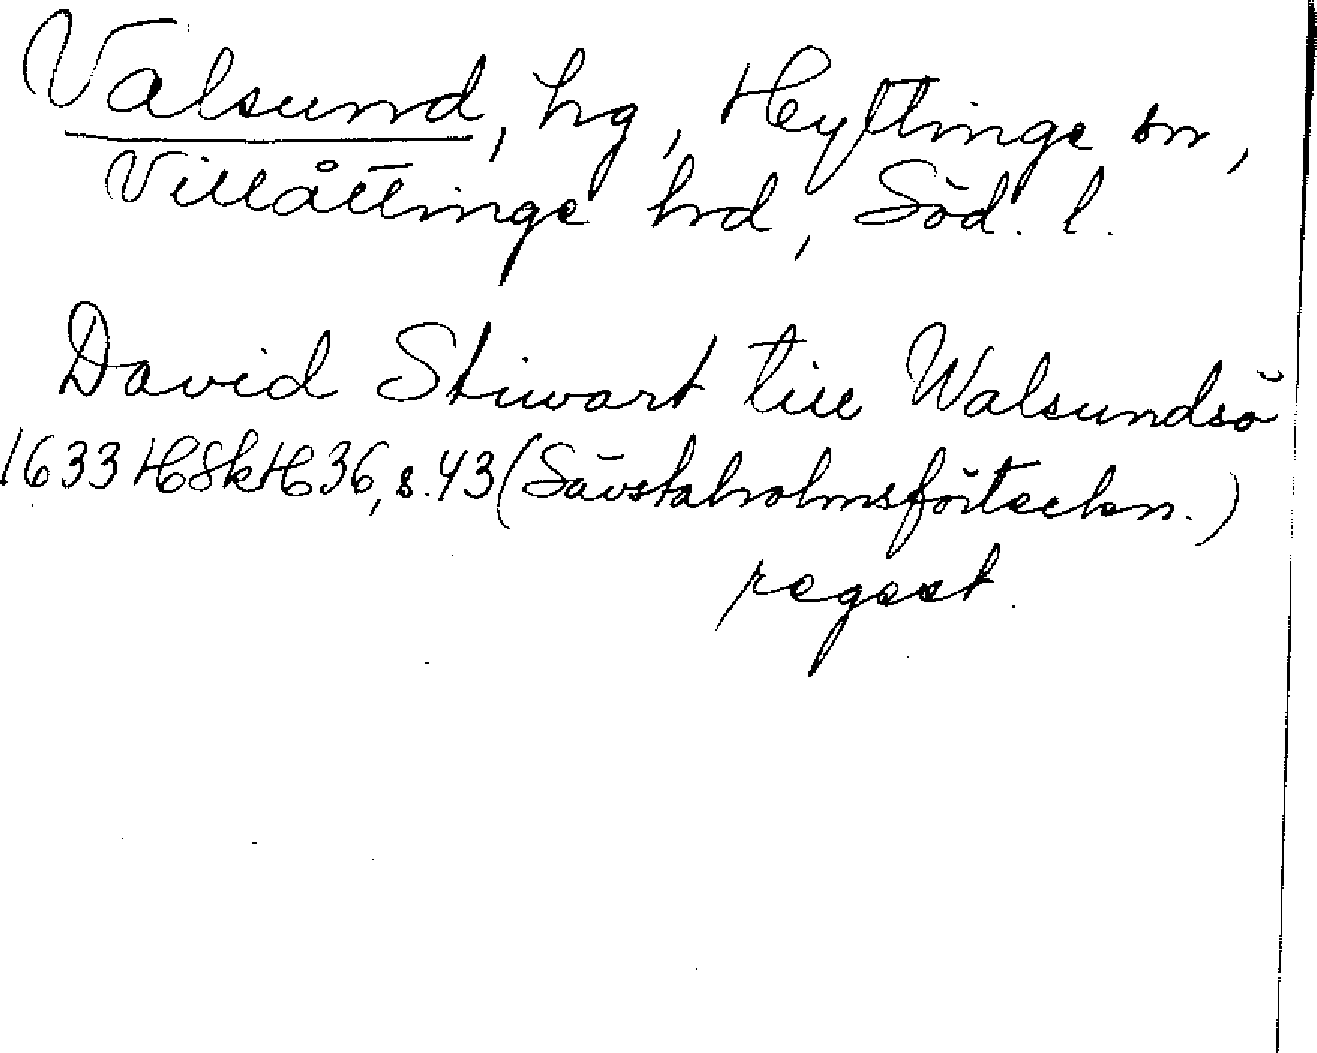 Valsund, hg, Hyltinge sn,
Villåttinge hd, Söd. l.
David Stiwart till Walsundsö
1633 HSkH36, s. 43 (Sävstaholmsförteckn.)
regest.